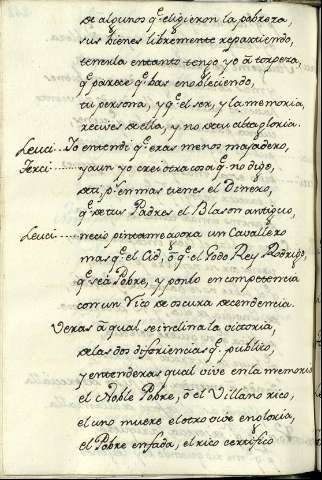 de algunos q.e eligieron la pobreza,
sus bienes libremente repartiendo,
tenerla entanto tengo yo a torpeza,
q.e parece q.e has enobleciendo,
tu persona, y q.e el ser, y la memoria,
recives de ella, y no de tu alta gloria.
Leuci. Yo entendi q.e eras menos majadero,
Terci. y aun yo crei otra cosa q.e no digo,
de ti, p.s en mas tienes el Dinero,
q.e de tus Padres el Blason antiguo,
Leuci. necio pintame agora un Cavallero
mas q.e el Cid, ò q.e el Godo Rey Rodrigo,
q.e sea Pobre, y ponlo en competencia
con un Rico de oscura decendencia.
Veras à qual se inclina la victoria,
de las dos diferiencias q.e publico,
y entenderas qual vive en la memoria
el Noble Pobre, ò el Villano rico,
el uno muere el otro vive en gloria,
el Pobre enfada, el rico certifico